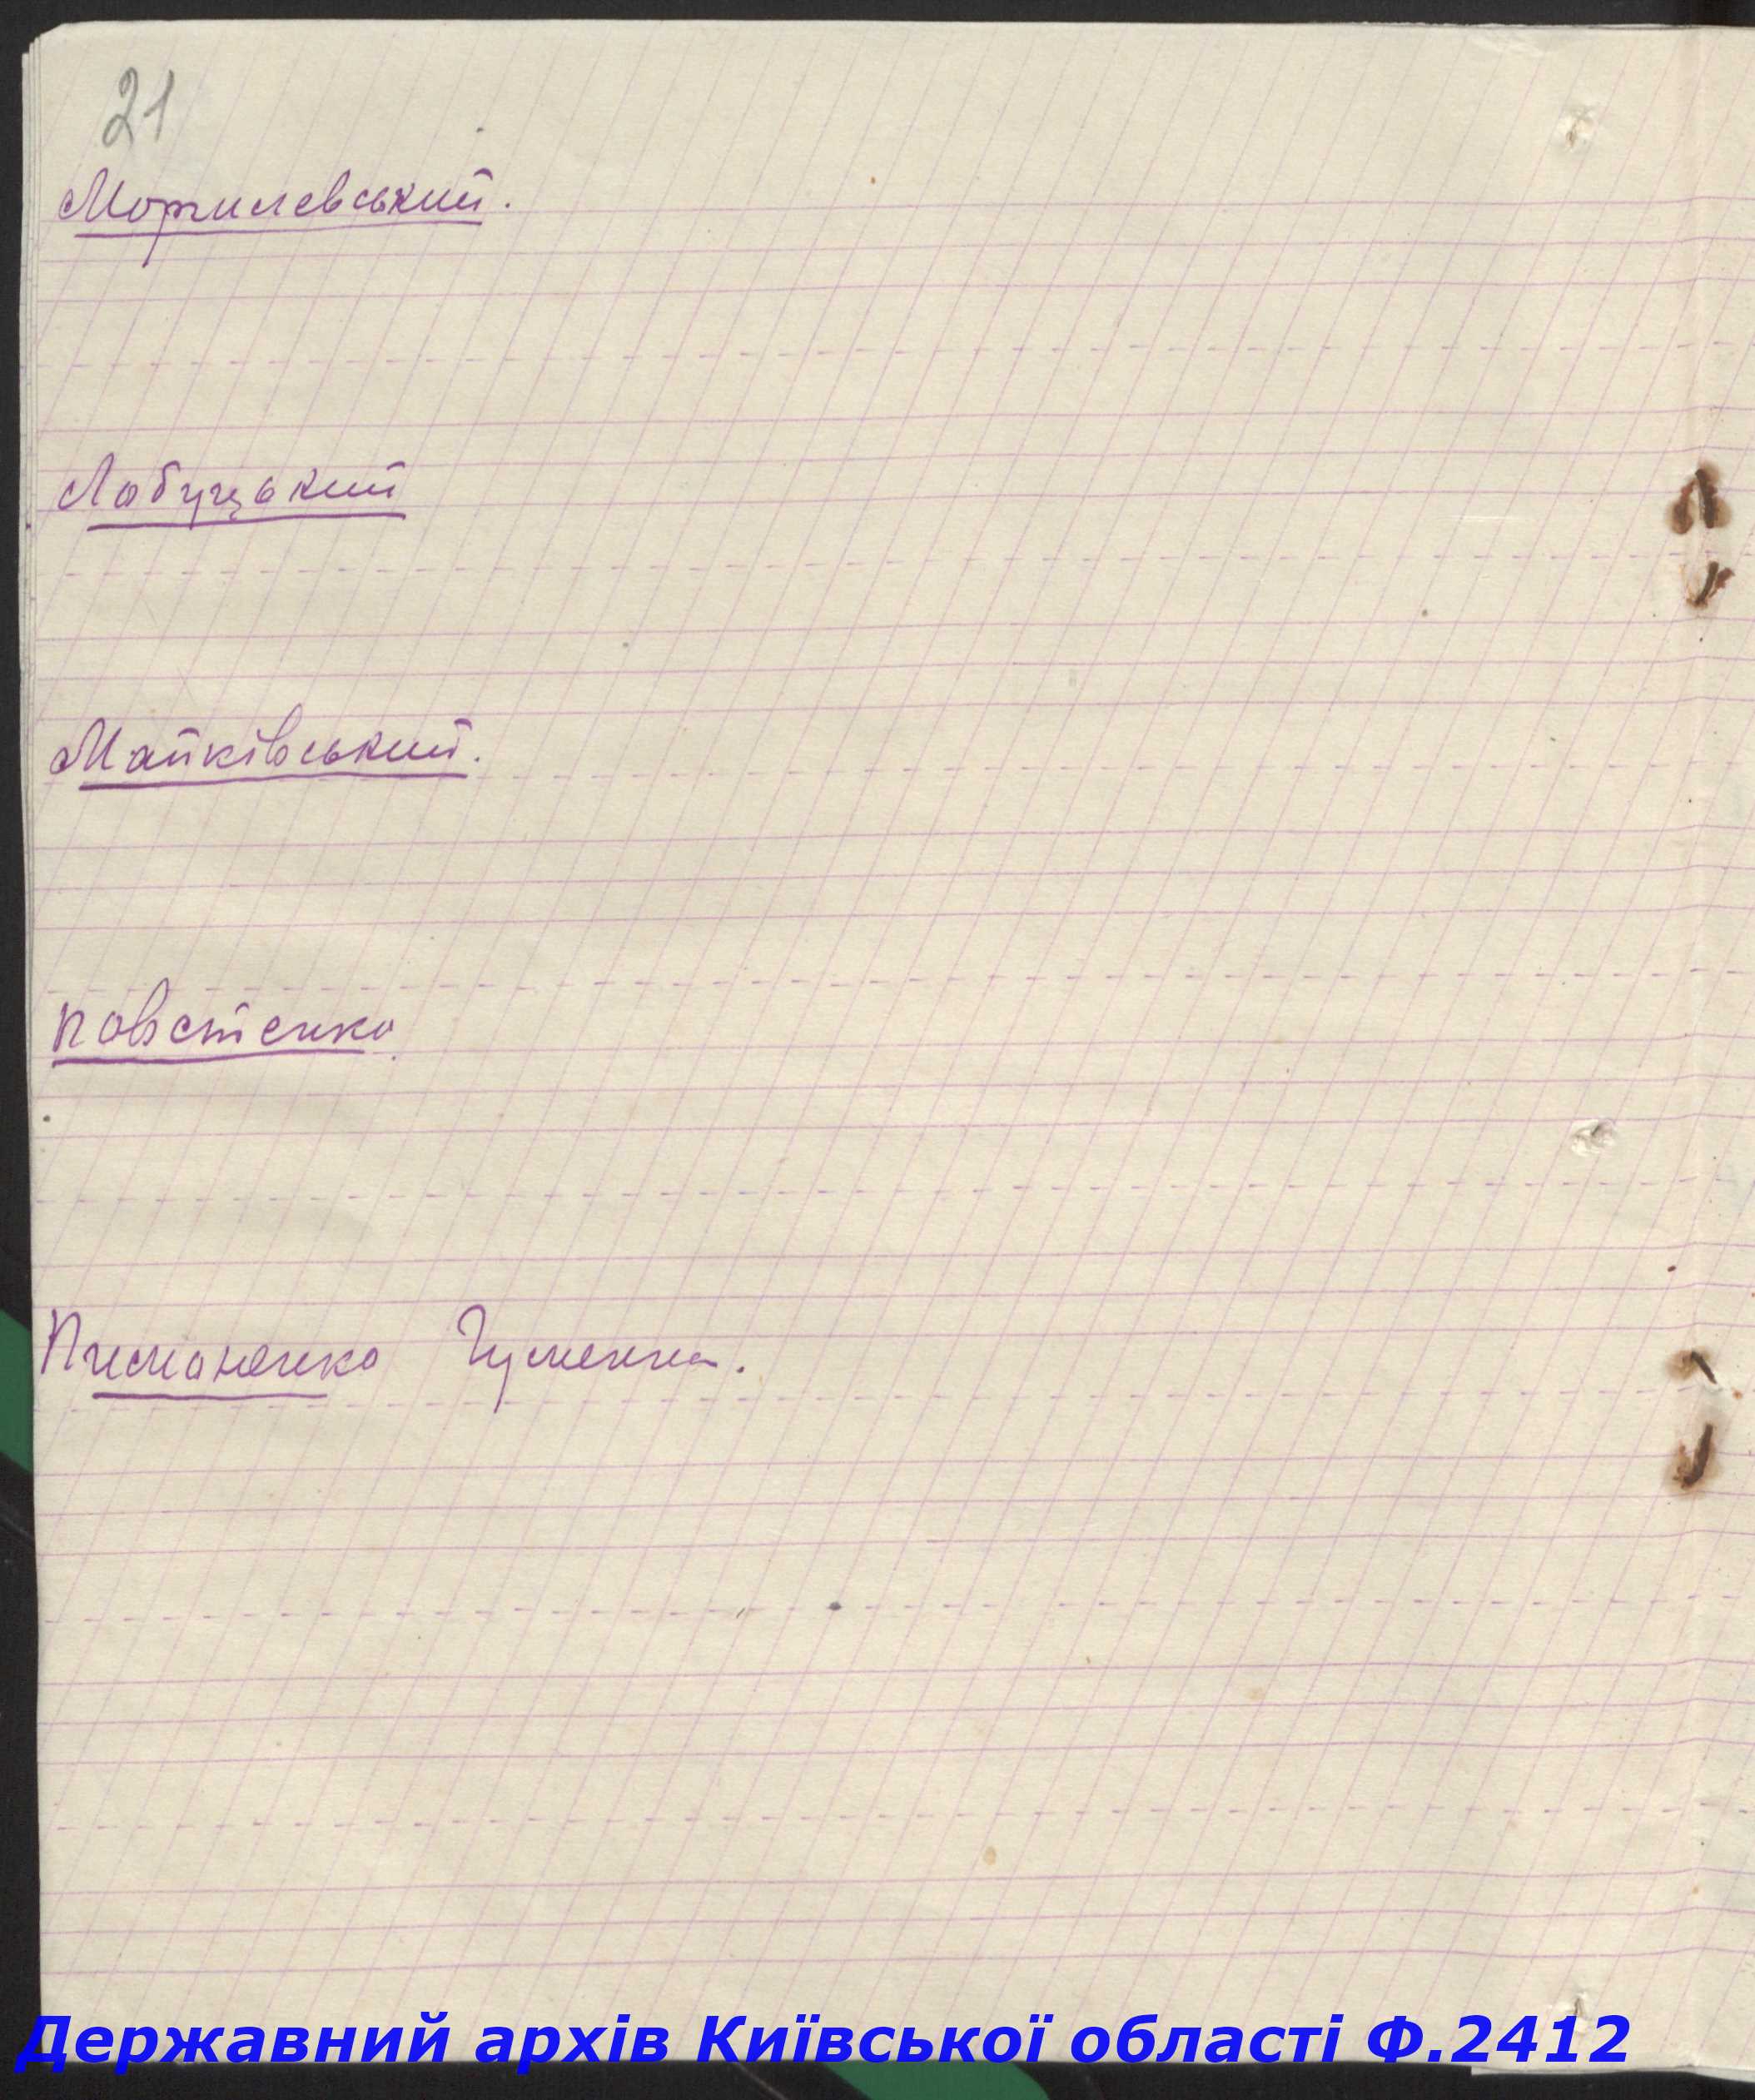 21
Могилевський.
Лабуцький
Майківський.
Повстенко
Пимоненко
Державний архів Київської області Ф.2412